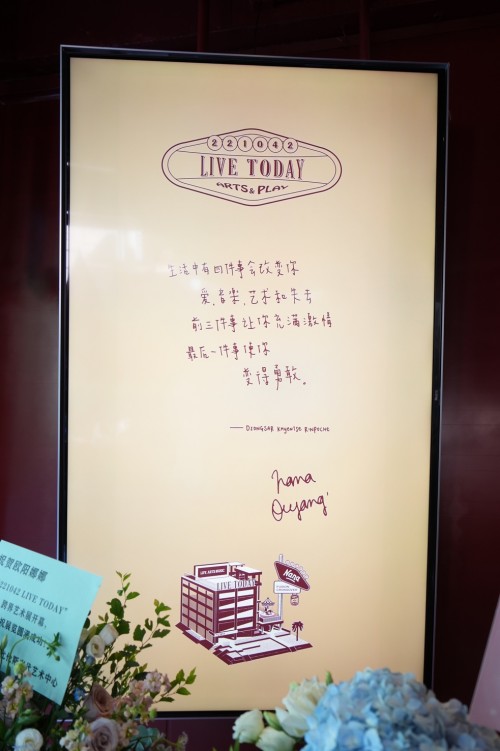 221042
LIVE TODAY
ARTS & PLAY
生活中有四件事会改变你
爱、音乐、艺术和失去
前三件事让你充满激情
最后一件事使你
变得勇敢。
— DZONGSAR KHYENTSE RINPOCHE
nana
Ouyang
LIVE TODAY
Nana
祝贺欧阳娜娜
"221042 LIVE TODAY"
跨界艺术展开幕,
祝福巡演演出成功
艺术中心